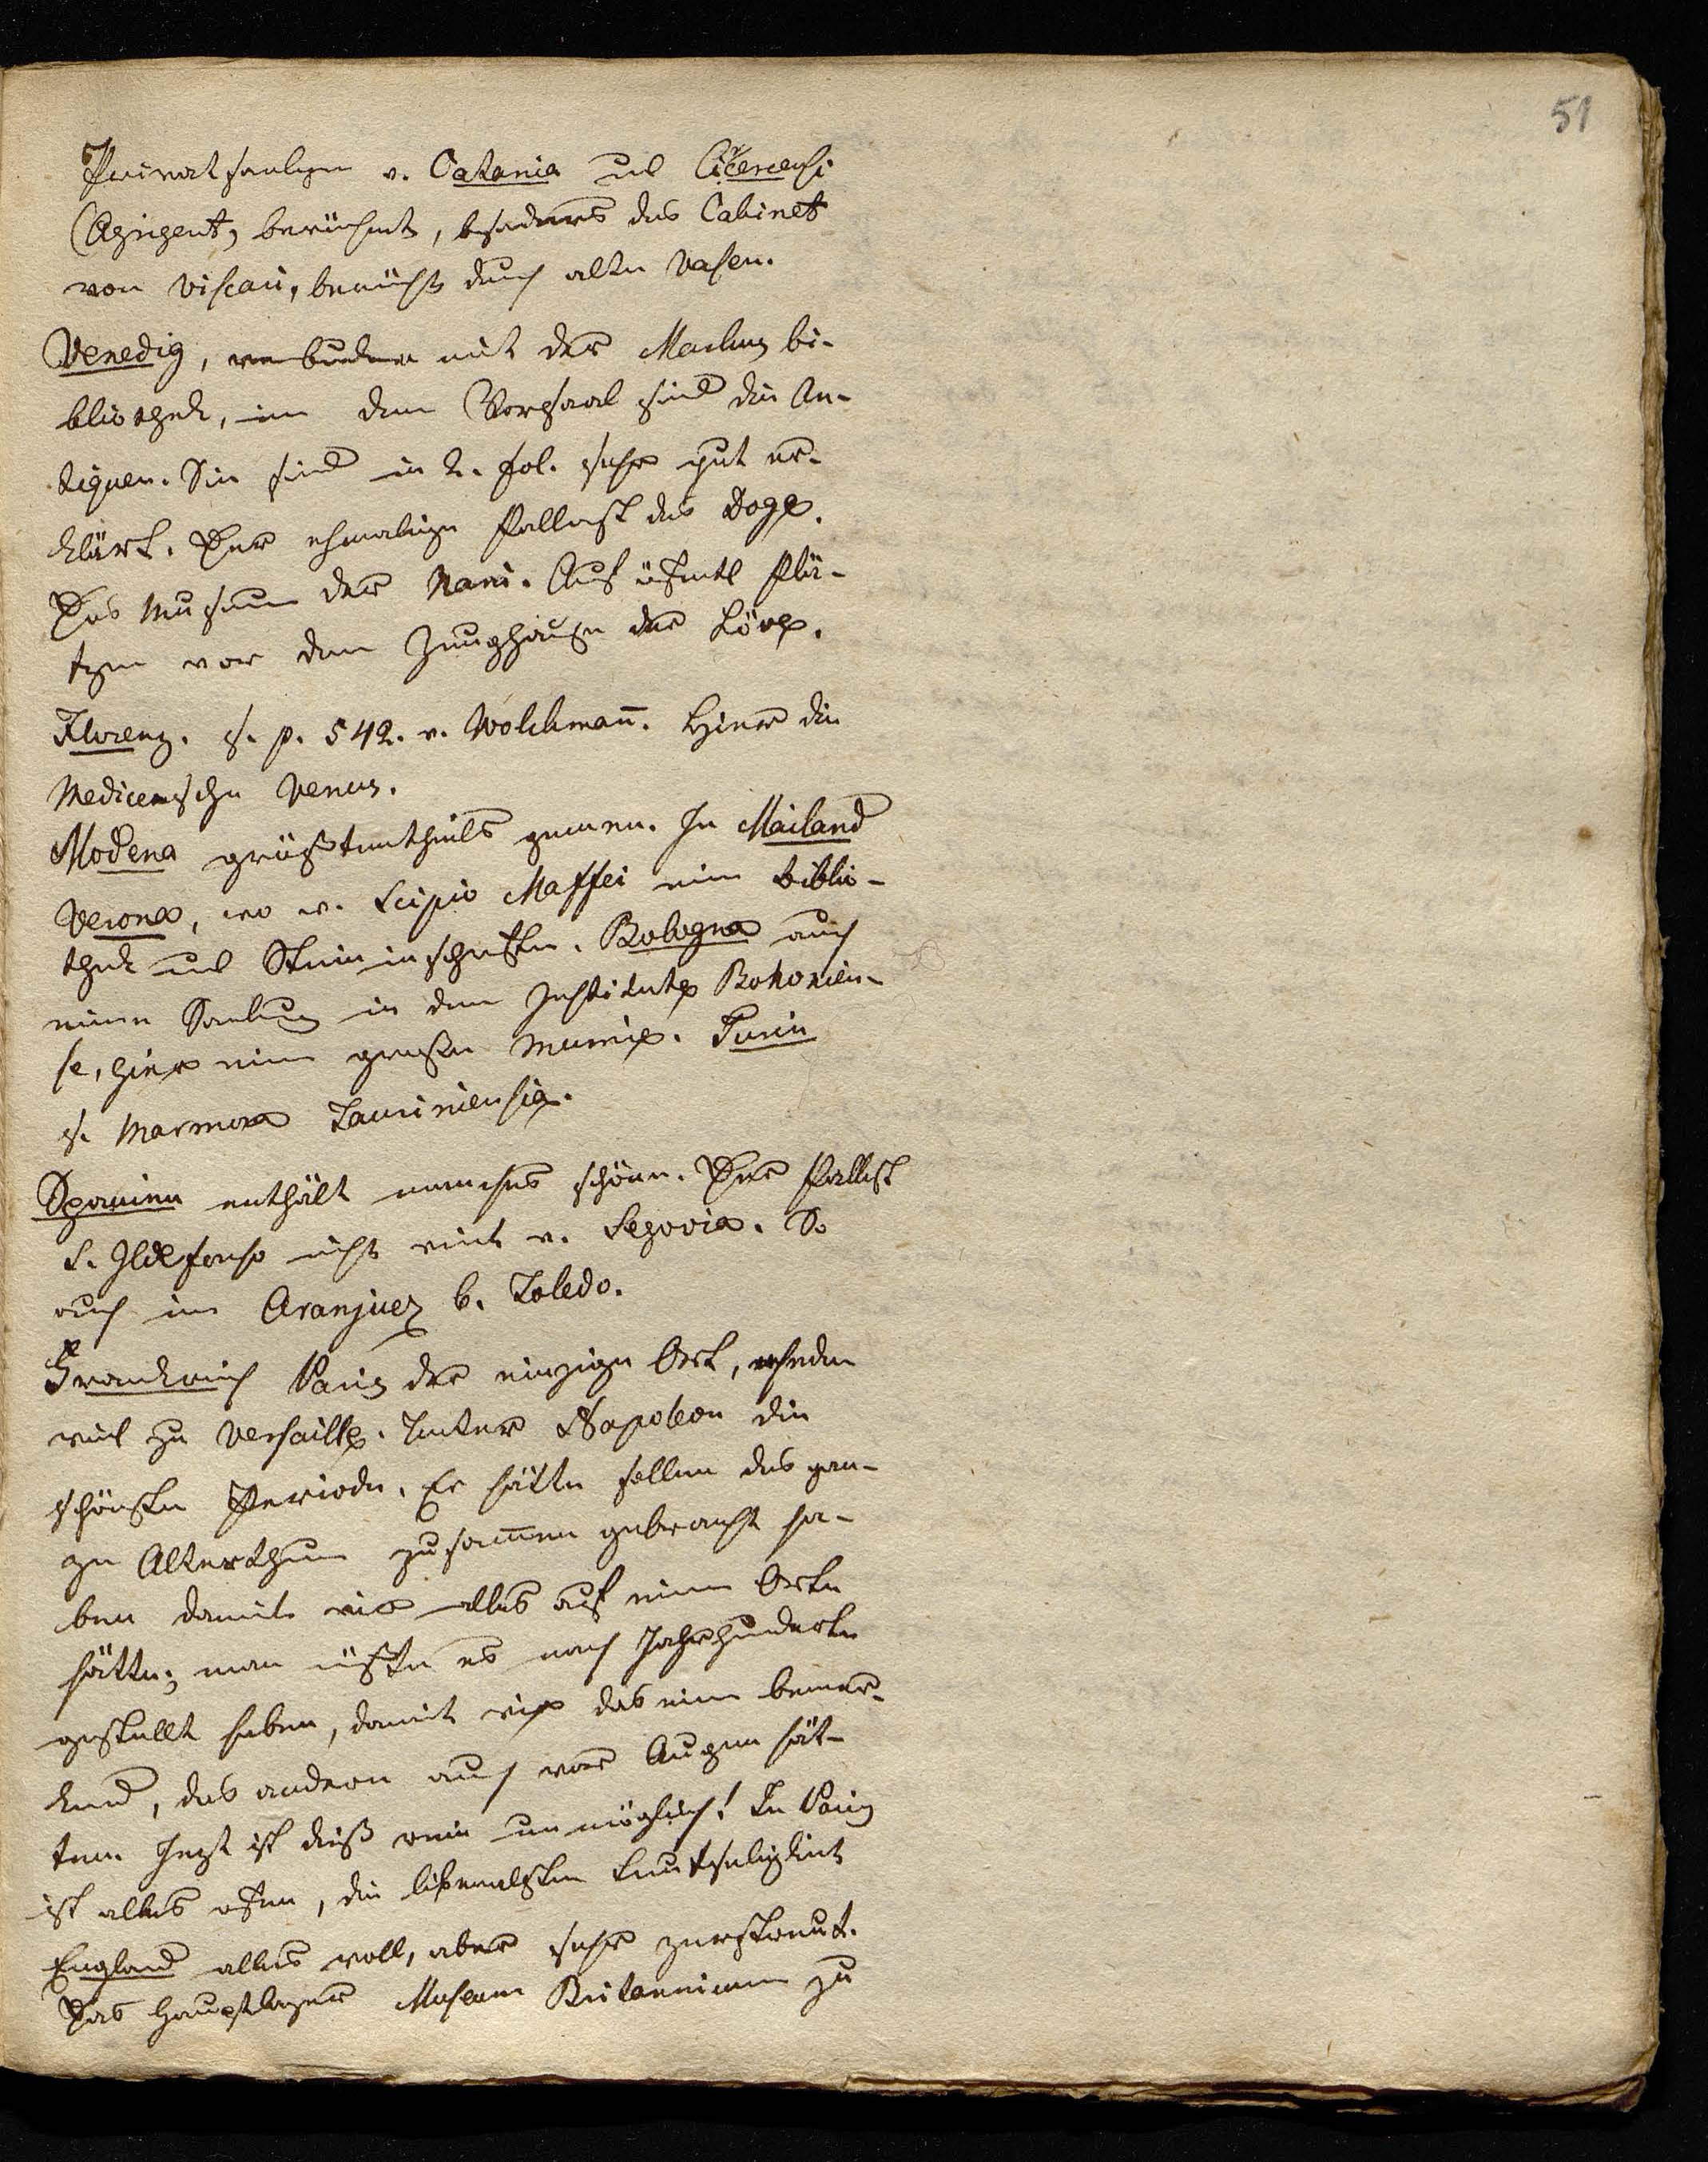 51
Privatsamlgen v. Catania und
(Agrigent) berühmt, besonders das Cabinet
von Viscari, berühmt durch alte Vasen.
Venedig, verbunden mit der Markus bi-
bliothek, im dem Vorsaal sind die An-
tiquen. Sie sind in 2. fol. sehr gut er-
klärt. Der ehmalige Pallast des Doge.
Das Museum der Nani. Auf öfentl Plä-
tzen vor dem Zeughause der Löwe.
Florenz. s. p. 542. v. Wolckman̄. Hier die
Mediceische Venus.
Modena größtentheils gemen. In Mailand
Verona, wo v. Scipio Maffei eine biblio-
thek und Steininschriften. Bologna auch
eine Samlung in dem Institute Bononien-
se, hier eine große Mumie. Turin
s. Marmora Tauriniensia.
Spanien enthält manches schöne. Der Pallast
S. Ildefonso nicht weit v. Segovia. So
auch im Aranjuez b. Toledo.
Frankreich Paris der einzige Ort, ehedem
viel zu Versaille. Unter Napoleon die
schönste Periode. Er hätte sollen das gan-
ze Alterthum zusam̄en gebracht ha-
ben damit wir alles auf einem Orte
hätten; man müßte es nach Jahrhunderte
gestellt haben, damit wir das eine bemer-
kend, das andere auch vor Augen hät-
ten. Jezt ist dieß rein unmöglich! In Paris
ist alles ofen, die liberalste Leutseligkeit
England alles voll, aber sehr zerstreut.
Das Hauptlager Museum Britannicum zu